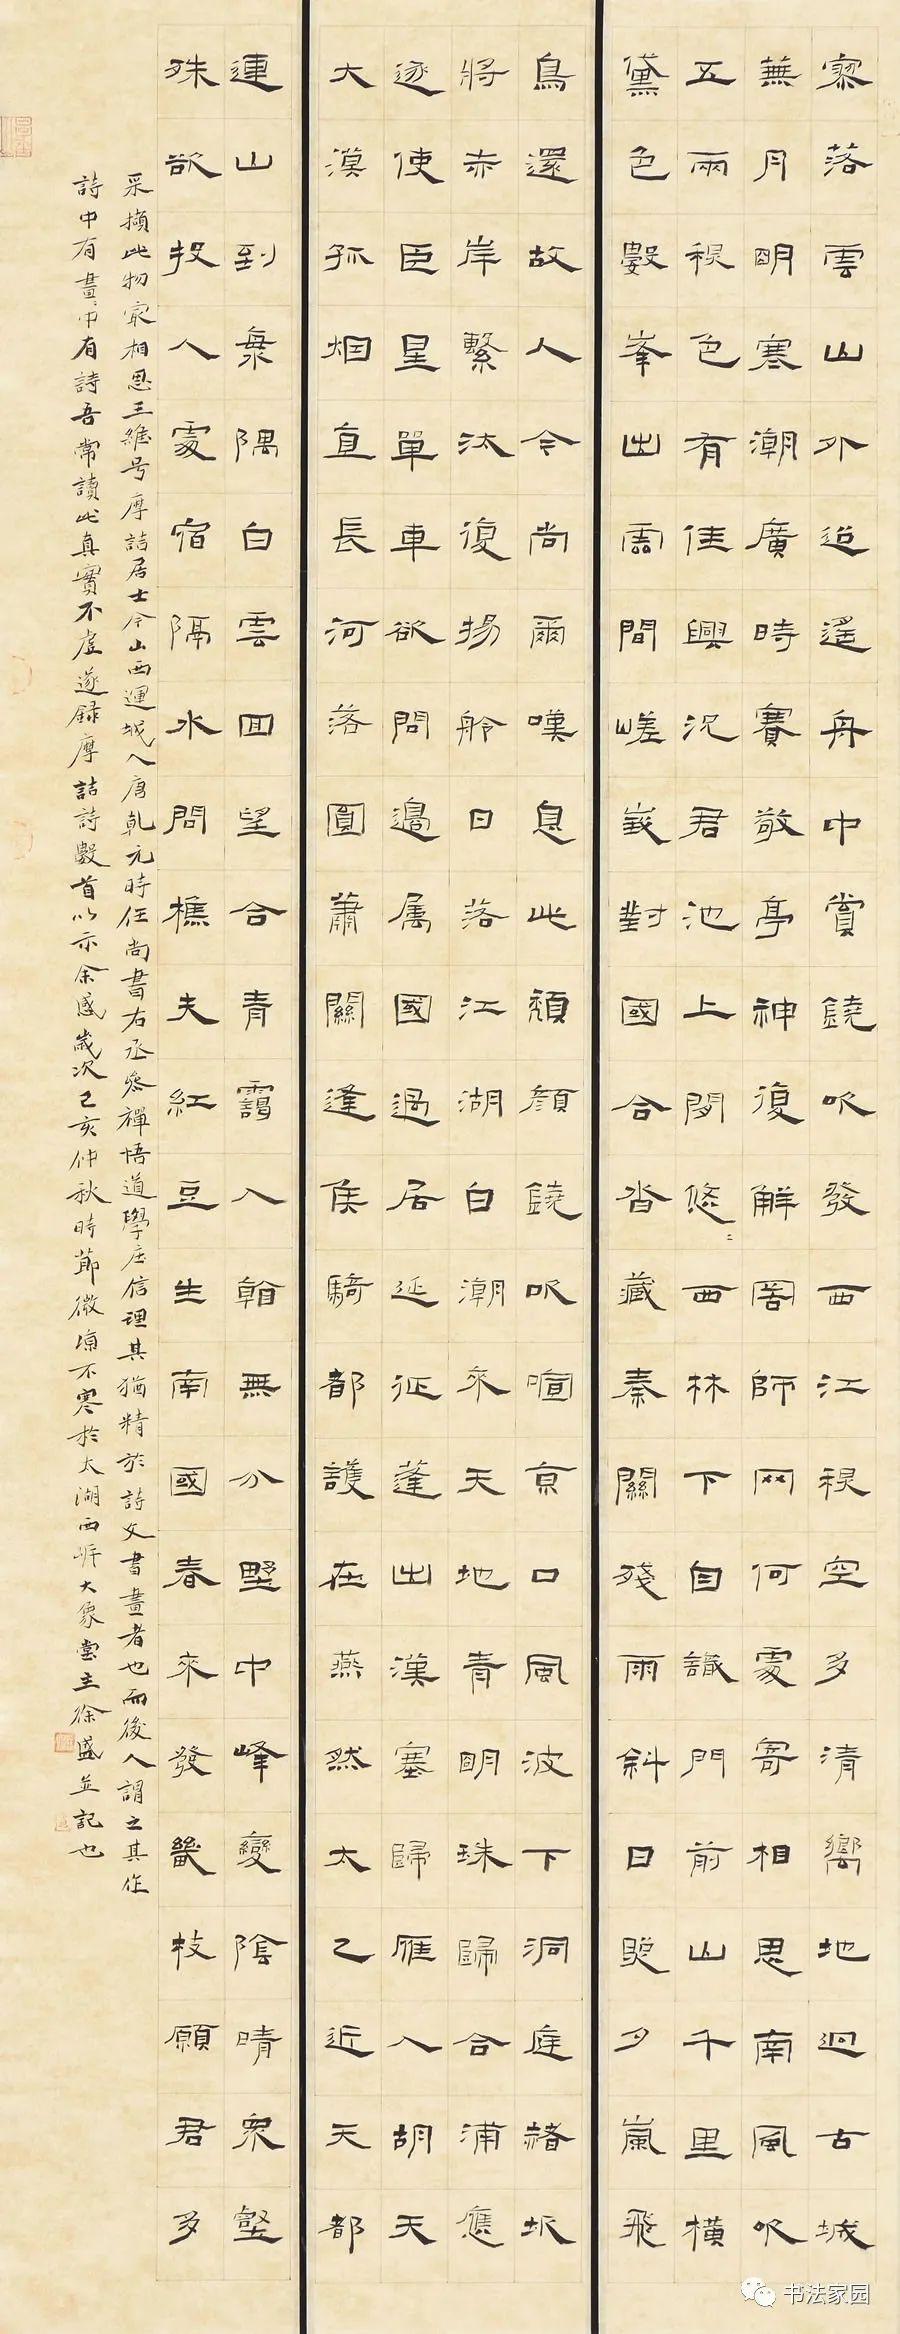 寥落雲山外迢遥舟中賞鐃吹發西江秋空多清嚮地迥古城
蕪月明寒潮廣時賽敬亭神復解罟師网何處寄相思南風吹
五兩秋色有佳興況君池上閑悠〻西林下自識門前山千里横
黛色數峯出雲間嵯峨對國合沓藏秦關殘雨斜日照夕嵐飛
鳥還故人今尚爾嘆息此頹顏鐃吹喧京口風波下洞庭赭圻
將赤岸繫汰復揚舲日落江湖白潮來天地青明珠歸合浦應
逐使臣星單車欲問邊属國過居延征蓬出漢塞歸雁入胡天
大漠孤烟直長河落圓蕭關逢侯騎都護在燕然太乙近天都
連山到海隅白雲回望合青靄入看無分野中峰變陰晴衆壑
殊欲投人處宿隔水問樵夫紅豆生南國春來發幾枝願君多
采擷此物最相思王維号摩詰居士今山西運城人唐乾元時任尚書右丞參禪悟道學庄信理其猶精於詩文書畫者也而後人謂之其作
詩中有畫〻中有詩吾常讀此真實不虛遂録摩詰詩數首以示余感歲次己亥仲秋時節微凉不寒於太湖西岸大象堂主徐盛並記也
书法家园